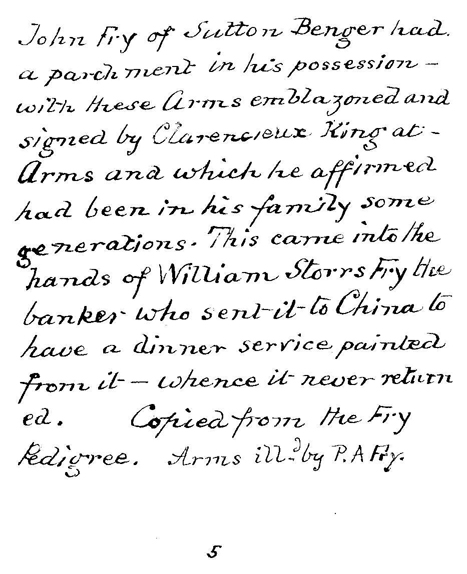 John Fry of Sutton Benger had.
a parchment in his possession –
with these Arms emblazoned and
signed by Clarencieux King at-
Arms and which he affirmed
had been in his family some
generations. This came into the
hands of William Storrs Fry the
banker who sent it to China to
have a dinner service painted
from it – whence it never return
ed. Copied from the Fry
Pedigree. Arms ill.d by P.A Fry.
5